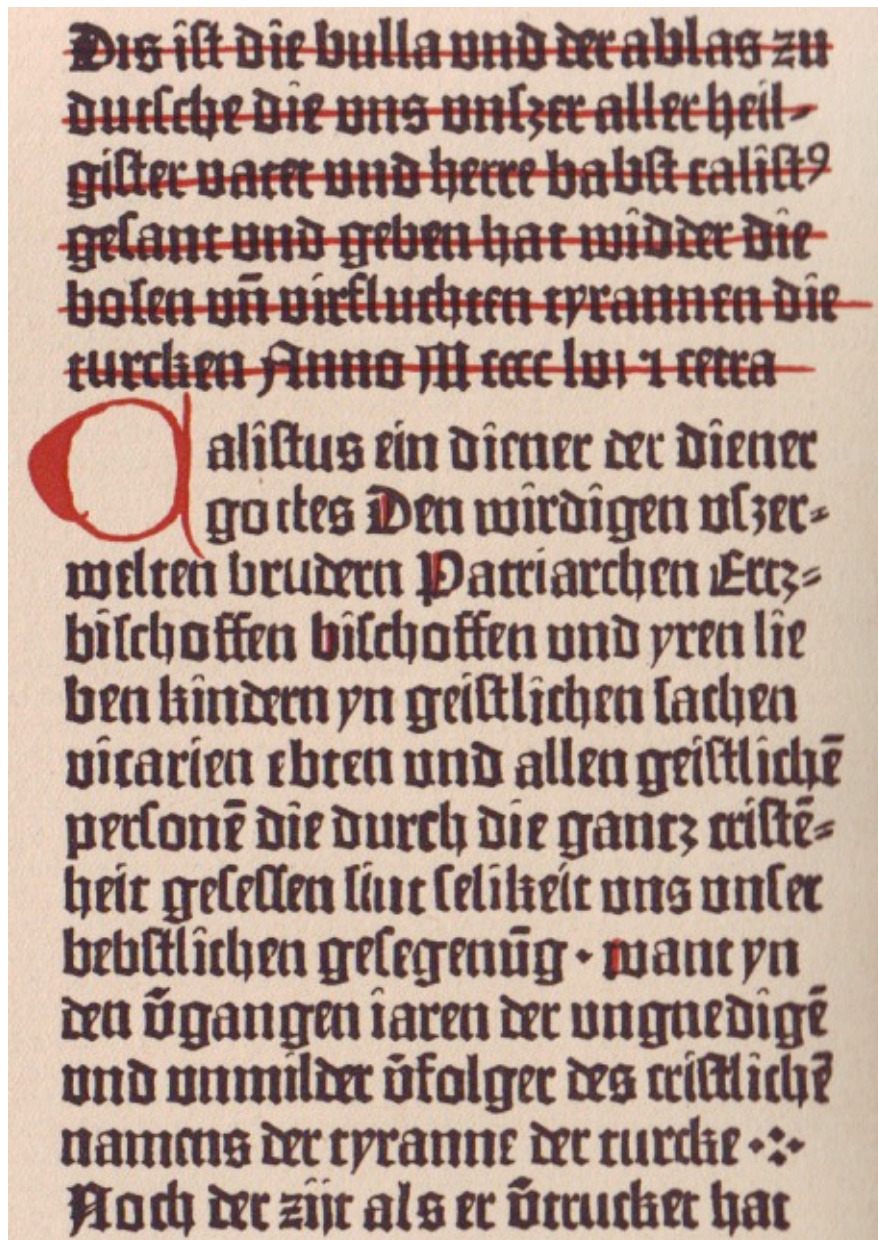 Dis ist die bulla und der ablas zu
dutsche die uns unszer aller heil-
gister vater und herre babst calistꝰ
gesant und geben hat widder die
bosen uñ virfluchten tyrannen die
turcken Anno M cccc lvi ⁊ cetra
Calistus ein diener der diener
gottes Den wirdigen uszer=
welten brudern Patriarchen Ertz=
bischoffen bischoffen und yren lie
ben kindern yn geistlichen sachen
vicarien ebten und allen geistlichē
personē die durch die gantz cristē=
heit gesessen sint selikeit uns unser
bebstlichen gesegenūg · want yn
den v̄gangen iaren der ungnedigē
und unmilder v̄folger des cristlichē
namens der tyranne der turcke
Noch der zijt als er v̄trucket hat